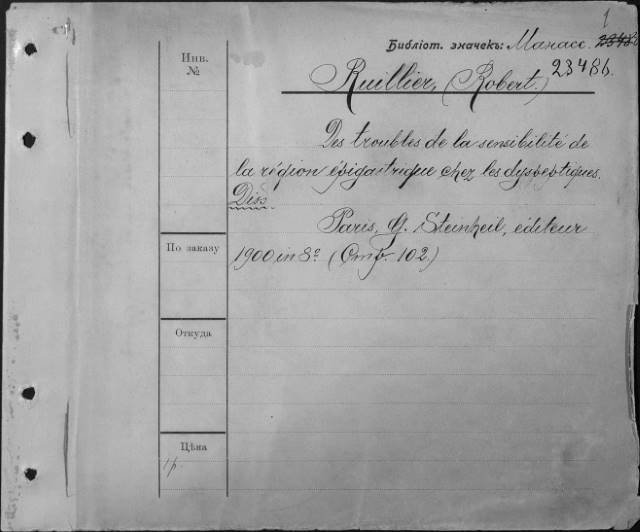 1
Библіот. значекъ: Манасс.
23486.
Инв.
№
Ruillier, (Robert.)
Des troubles de la sensibilité de
la région épigastrique chez les dyspeptiques.
Diss.
Paris, G. Steinheil, éditeur
1900 in 8º (Стр. 102)
По заказу
Откуда
Цѣна
1 р.